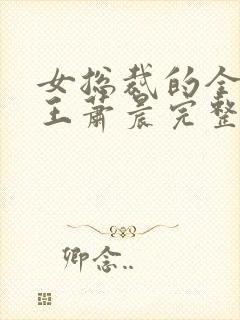 女总裁的全
王萧晨完整
卿念..